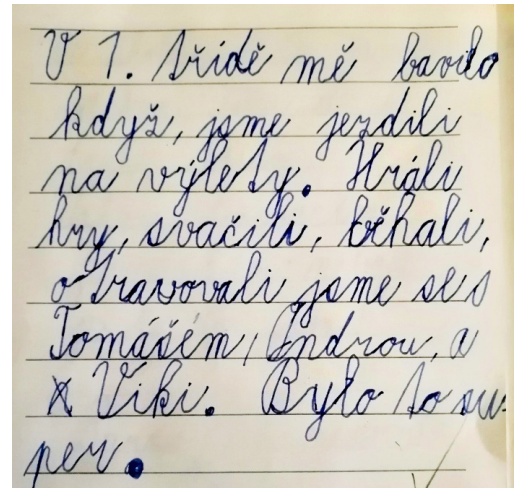 V 1. třídě mě bavilo
když, jsme jezdili
na výlety. Hráli
hry, svačili, běhali,
otravovali jsme se s
Tomášém, Ondrou, a
Viki. Bylo to su-
per.